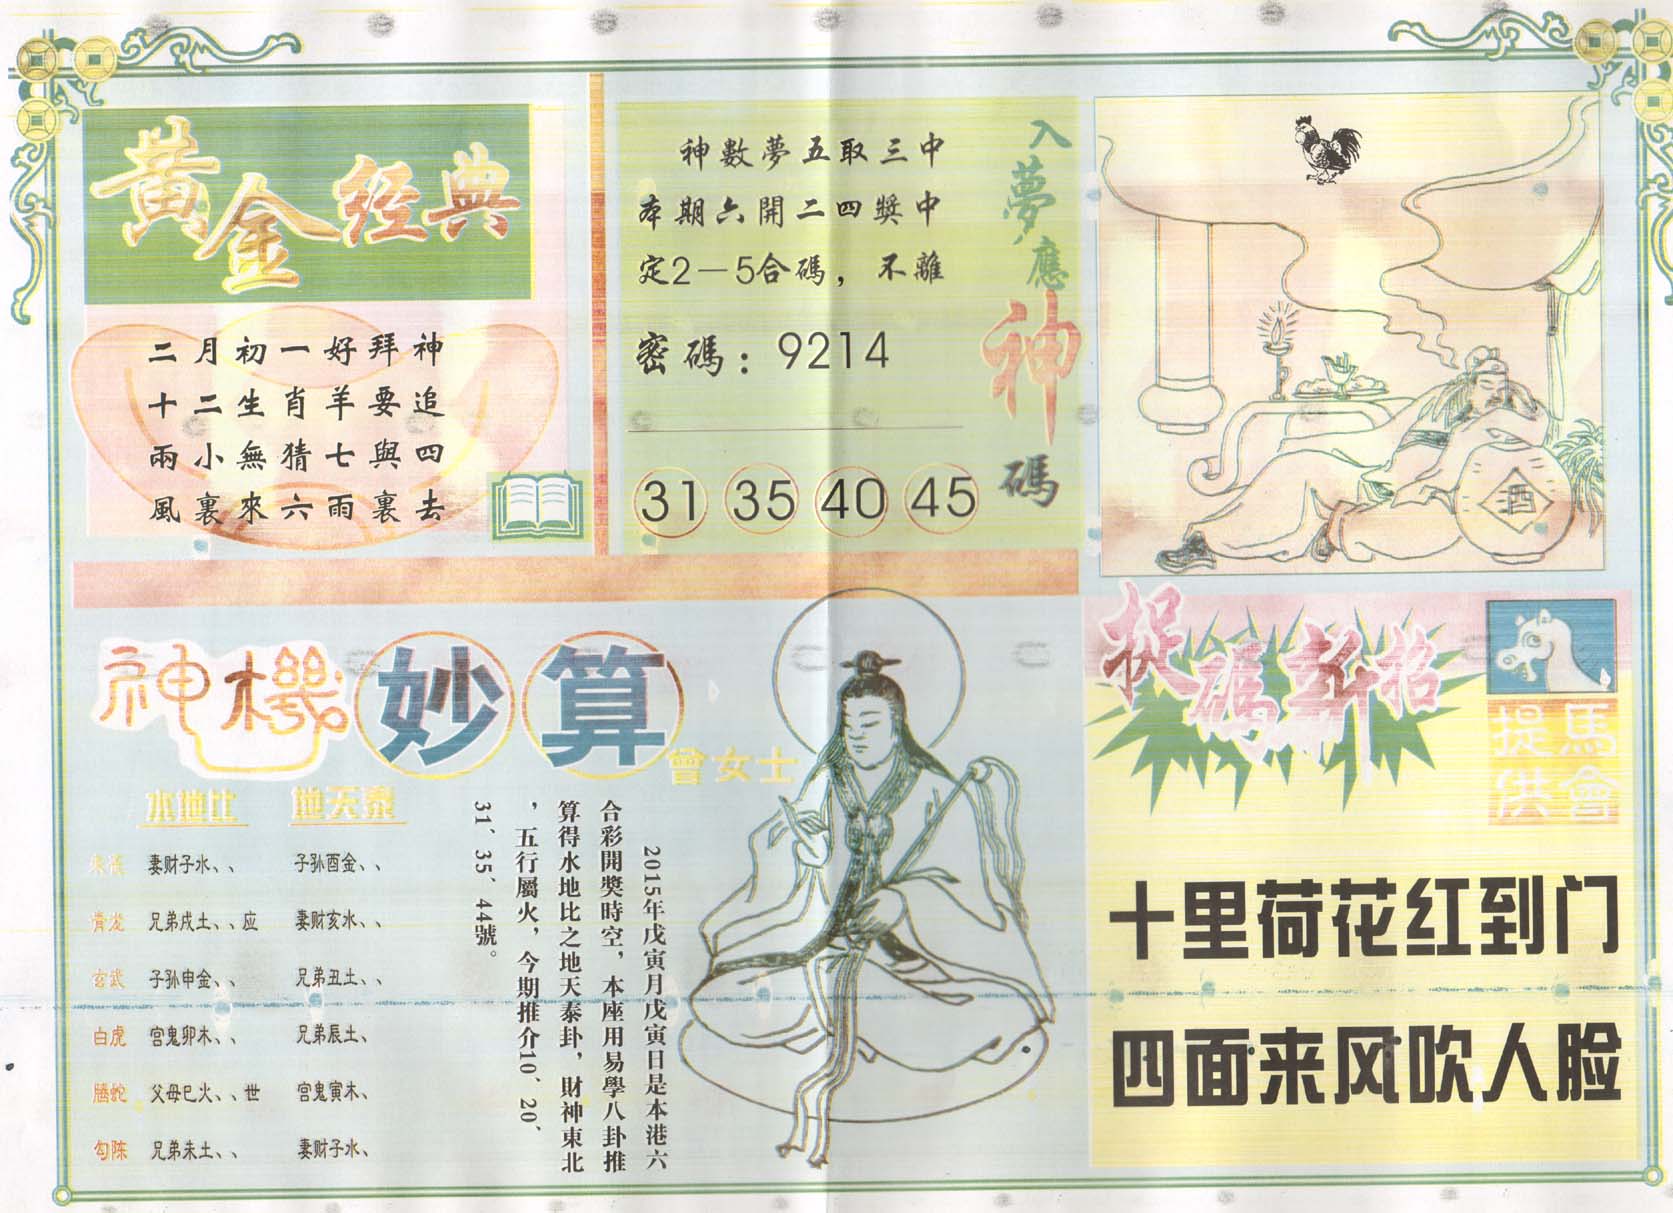 黃金经典
二月初一好拜神
十二生肖羊要追
兩小無猜七與四
風裏來六雨裏去
神數夢五取三中
本期六開二四獎中
定2－5合碼，不離
密碼：9214
31 35 40 45
入夢應神碼
酒
神機妙算
曾女士
水地比 地天泰
妻财子水、、 子孙酉金、、
青龙 兄弟戌土、、应 妻财亥水、、
玄武 子孙申金、、 兄弟丑土、、
白虎 宫鬼卯木、、 兄弟辰土、
騰蛇 父母巳火、、世 宫鬼寅木、
勾陈 兄弟未土、、 妻财子水、
2015年戊寅月戊寅日是本港六
合彩開獎時空，本座用易學八卦推
算得水地比之地天泰卦，財神東北
，五行屬火，今期推介10、20、
31、35、44號。
捉碼新招
馬會
提供
十里荷花红到门
四面来风吹人脸